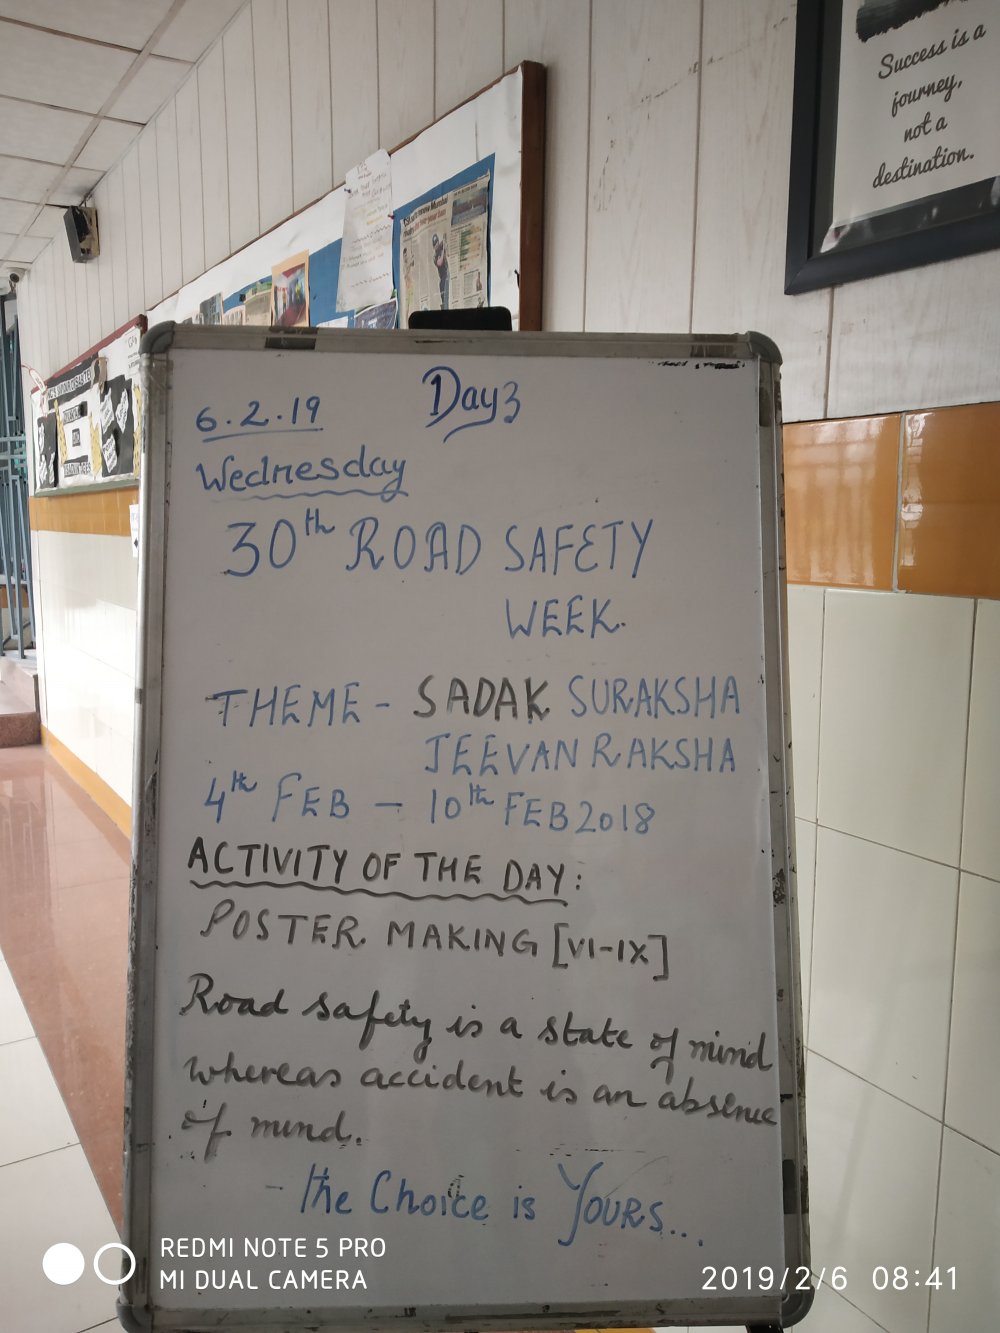 Success is a
journey,
not a
destination.
6.2.19
Day 3
Wednesday
30th ROAD SAFETY
WEEK.
THEME - SADAK SURAKSHA
JEEVAN RAKSHA
4th FEB - 10th FEB 2018
ACTIVITY OF THE DAY:
POSTER MAKING [VI-IX]
Road safety is a state of mind
whereas accident is an absence
of mind.
- the Choice is YOURS...
REDMI NOTE 5 PRO
MI DUAL CAMERA
2019/2/6 08:41